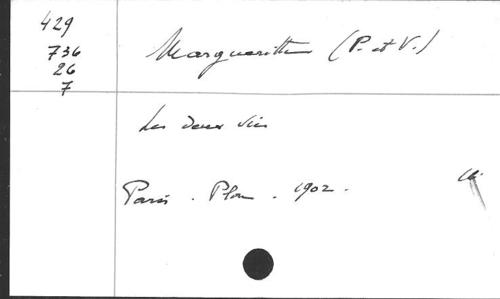 429
736
26
7
Margueritte (P. et V.)
Les deux vies
Paris . Plon . 1902 .